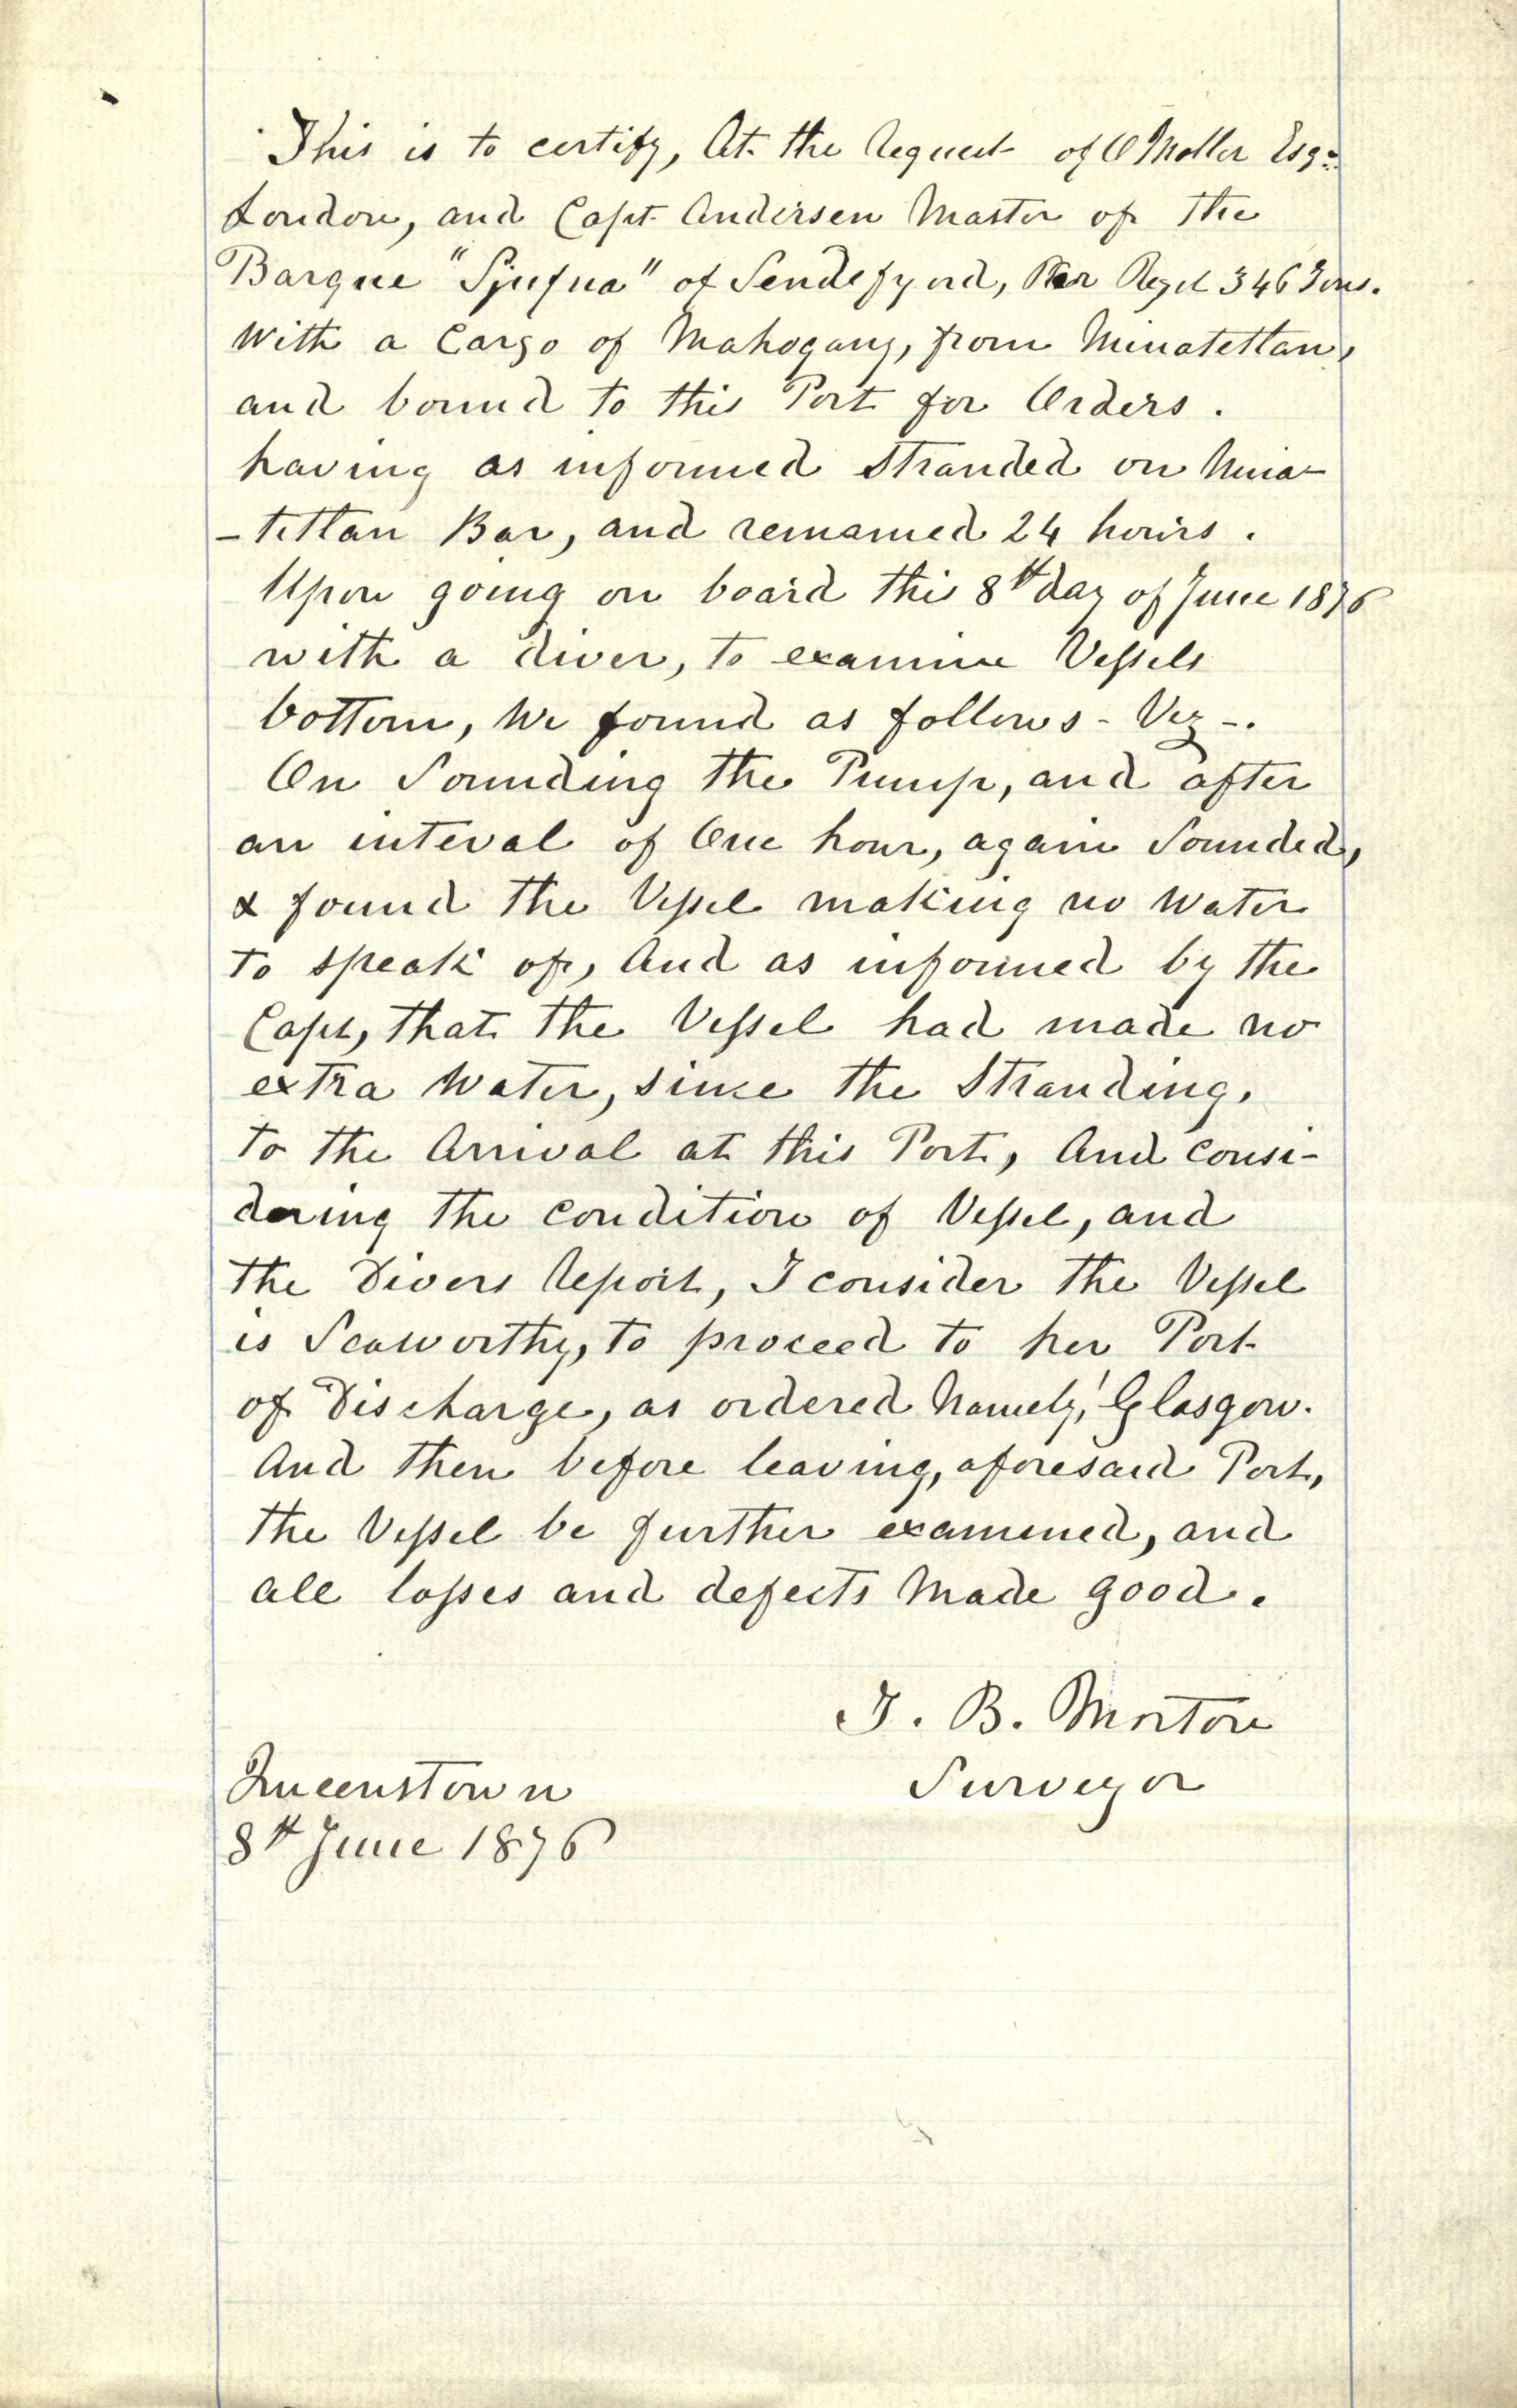 This is to certify, At the Request of O Moller Esqr
London, and Capt Andersen Master of the
Barque "Sjufna" of Sendefyord, Per Regd 346 Tons.
With a Cargo of Mahogany, from Minatetlan,
and bound to this Port for Orders.
having as informed Stranded on Mina-
-tetlan Bar, and remained 24 hours.
Upon going on board this 8th day of June 1876
with a diver, to examine Vessels
bottom, We found as follows - Viz -.
On Sounding the Pump, and after
an inteval of One hour, again Sounded,
& found the Vessel making no Water
to speak of, And as informed by the
Capt, that the Vessel had made no
extra Water, since the Stranding,
to the Arrival at this Port, And consi-
dering the condition of Vessel, and
the Divers Report, I consider the Vessel
is Seaworthy, to proceed to her Port
of Discharge, as ordered Namely, Glasgow.
And then before leaving, aforesaid Port,
the Vessel be further examined, and
all losses and defects Made good.
J. B. Morton
Surveyor
Queenstown
8th June 1876